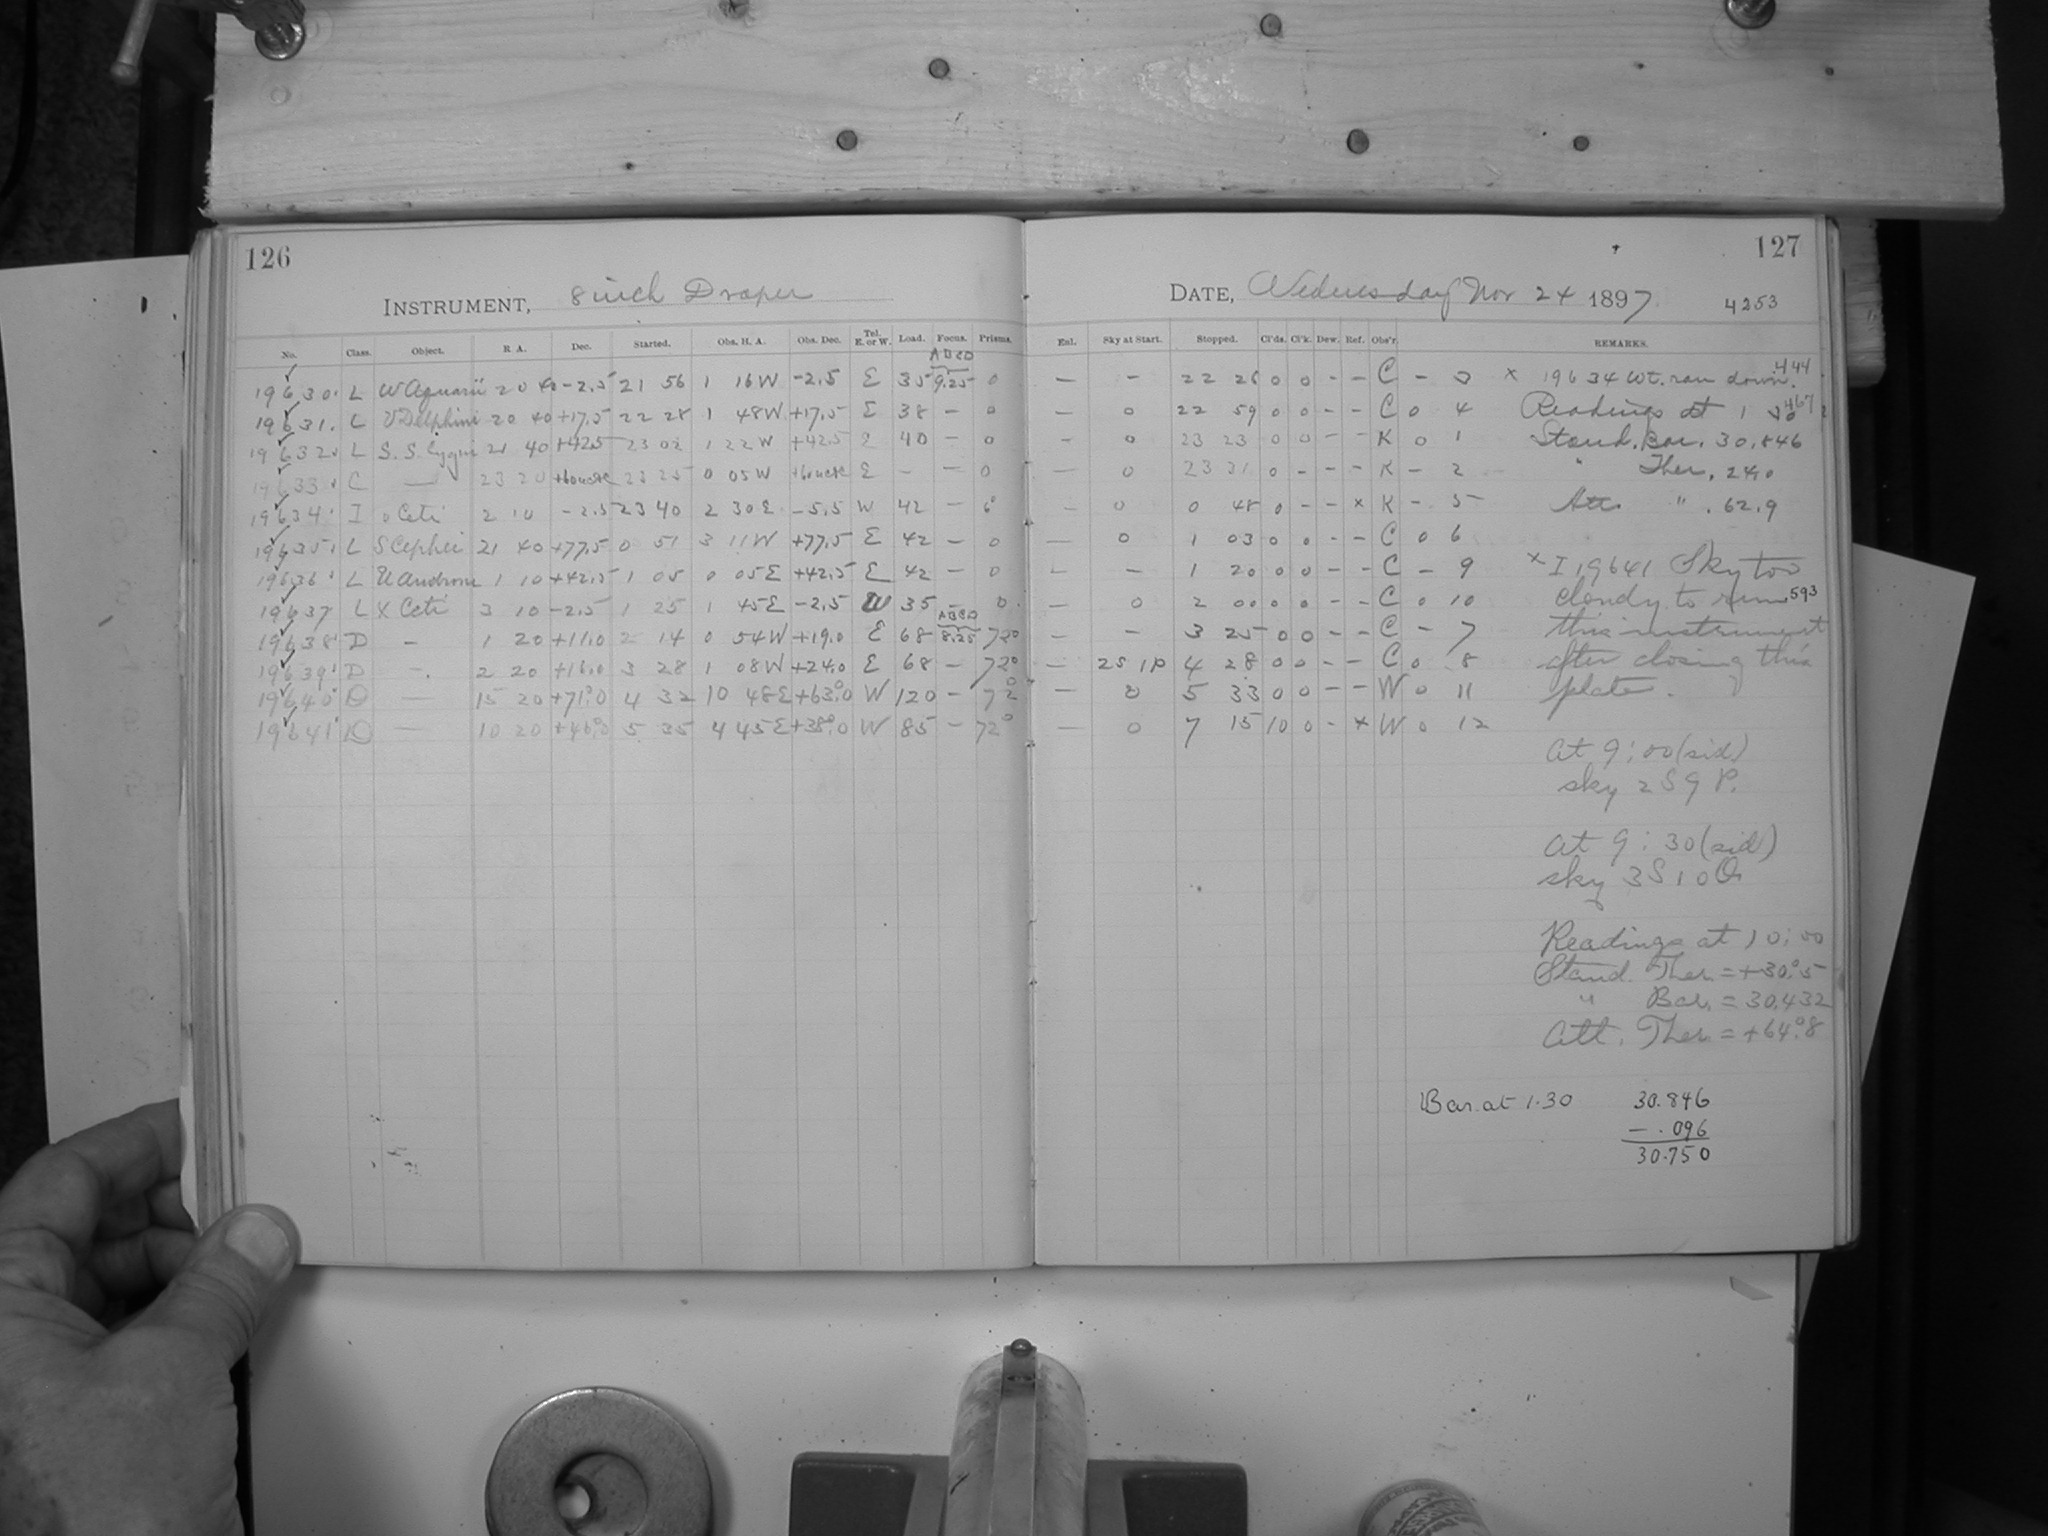 126
INSTRUMENT, 8 inch Draper
No. Class. Object. R. A. Dec. Started. Obs. H. A. Obs. Dec. Tel. E. or W. Load. Focus. Prisms.
ABCD
19630 L W Aquarii 20 40 -2.5 21 56 1 16 W -2.5 E 35 9.25 0
19631 L V Delphini 20 40 +17.5 22 28 1 48 W +17.5 E 38 - 0
19632 L S.S. Cygni 21 40 +42.5 23 02 1 22 W +42.5 E 40 - 0
19633 C — 23 20 23 25 0 05 W E - - 0
19634 I o Ceti 2 10 -2.5 23 40 2 30 E -5.5 W 42 - 6°
19635 L S Cephei 21 40 +77.5 0 51 3 11 W +77.5 E 42 - 0
19636 L U Androm 1 10 +42.5 1 05 0 05 E +42.5 E 42 - 0
19637 L X Ceti 3 10 -2.5 1 25 1 45 E -2.5 W 35 - 0
ABCD
19638 D - 1 20 +11.0 2 14 0 54 W +19.0 E 68 8.25 72°
19639 D - 2 20 +16.0 3 28 1 08 W +24.0 E 68 - 72°
19640 D — 15 20 +71°.0 4 32 10 48 E +63°.0 W 120 - 72°
19641 D — 10 20 +46°.0 5 35 4 45 E +38°.0 W 85 - 72°
127
DATE, Wednesday Nov 24 1897 4253
Enl. Sky at Start. Stopped. Cl'ds. Cl'k. Dew. Ref. Obs'r. REMARKS.
— - 22 26 0 0 - - C - 3 x 19634 Wt. ran down. .444
— 0 22 59 0 0 - - C 0 4 Readings at 1 30 467
- 0 23 23 0 0 - - K 0 1 Stand. Bar. 30.846
— 0 23 31 0 - - - K - 2 " Ther. 24.0
- 0 0 48 0 - - x K - 5 Att. " . 62.9
— 0 1 03 0 0 - - C 0 6
- - 1 20 0 0 - - C - 9 x I 19641 Sky too
— 0 2 00 0 0 - - C 0 10 cloudy to run 593
— - 3 25 0 0 - - C - 7 this instrument
— 2S 1P 4 28 0 0 - - C 0 8 after closing this
— 0 5 33 0 0 - - W 0 11 plate.
— 0 7 15 10 0 - x W 0 12
At 9:00 (sid)
sky 2 S 9 P.
At 9:30 (sid)
sky 3 S 10
Readings at 10:00
Stand. Ther. = +30°.5
" Bar. = 30.432
Att. Ther. = +64°.8
Bar. at 1.30 30.846
- .096
30.750